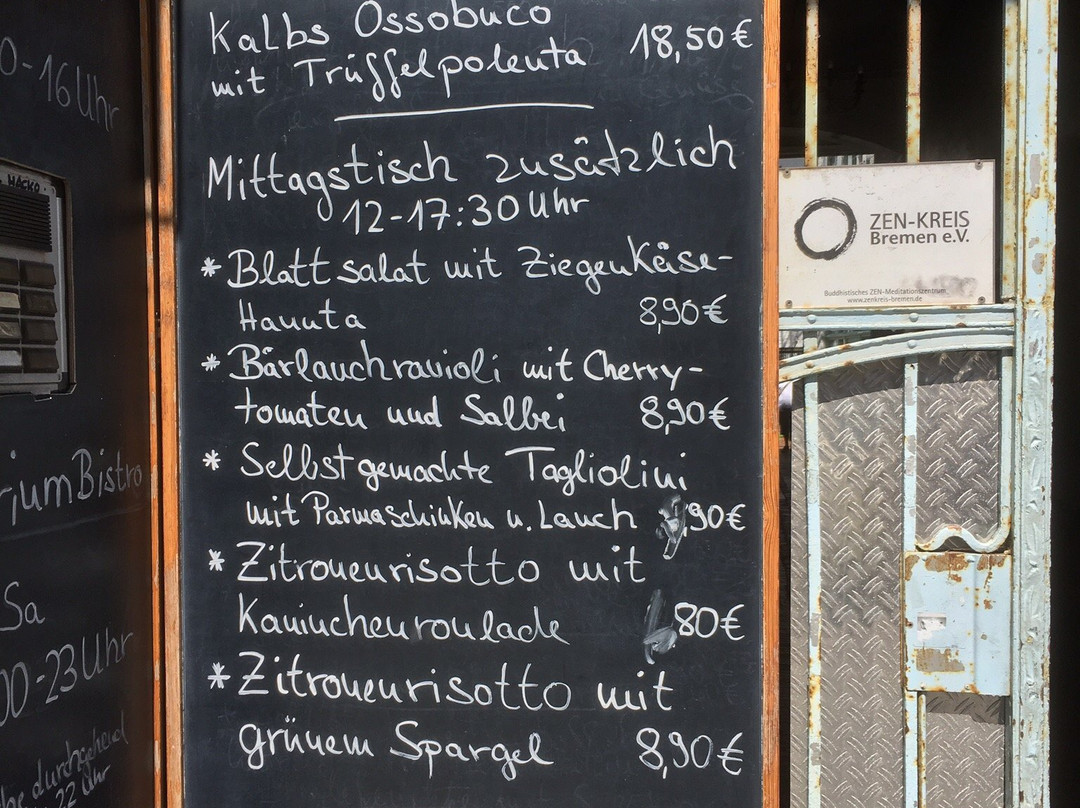 Kalbs Ossobuco
mit Trüffelpolenta 18,50 €
Mittagstisch zusätzlich
12-17:30 Uhr
* Blattsalat mit Ziegenkäse-
Hannta 8,90 €
* Bärlauchravioli mit Cherry-
tomaten und Salbei 8,90 €
* Selbstgemachte Tagliolini
mit Parmaschinken u. Lauch ,90 €
* Zitronenrisotto mit
Kaninchenroulade 80 €
* Zitronenrisotto mit
grünem Spargel 8,90 €
0-16 Uhr
HACKO
rium Bistro
Sa
00-23 Uhr
durchgehend
22 Uhr
ZEN-KREIS
Bremen e.V.
Buddhistisches ZEN-Meditationszentrum
www.zenkreis-bremen.de